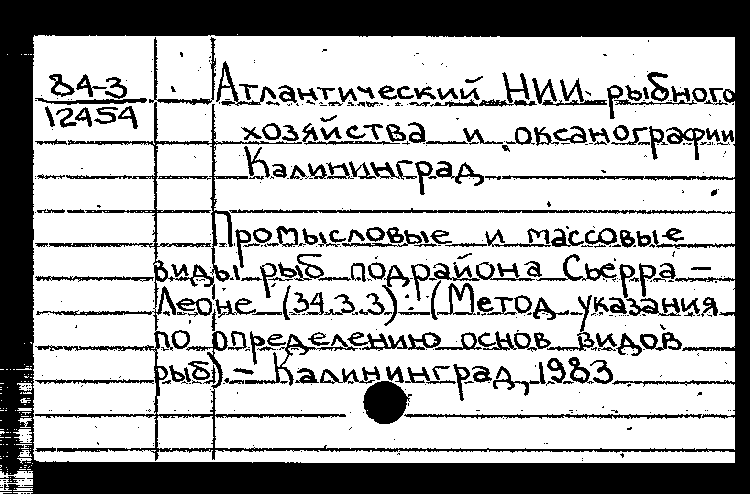 84-3
12454
Атлантический НИИ рыбного
хозяйства и океанографии
Калининград
Промысловые и массовые
виды рыб подрайона Сьерра –
Леоне (34.3.3): (Метод указания
по определению основ видов
рыб). – Калининград, 1983